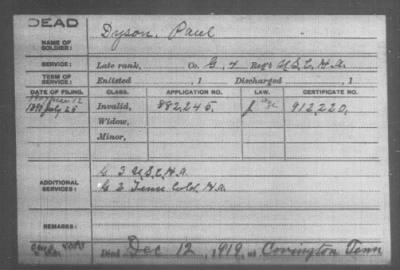 DEAD
NAME OF SOLDIER: Dyson, Paul
SERVICE: Late rank, Co. G, Reg't U.S.C.H.A.
TERM OF SERVICE: Enlisted , 1 Discharged , 1
DATE OF FILING. CLASS. APPLICATION NO. LAW. CERTIFICATE NO.
1897 July 26 Invalid, 882,245. 912,220.
Widow,
Minor,
ADDITIONAL SERVICES: G. 3 U.S.C.H.A.
G 2 Tenn Cold. H.A.
REMARKS:
Died Dec 12, 1919, at Covington Tenn